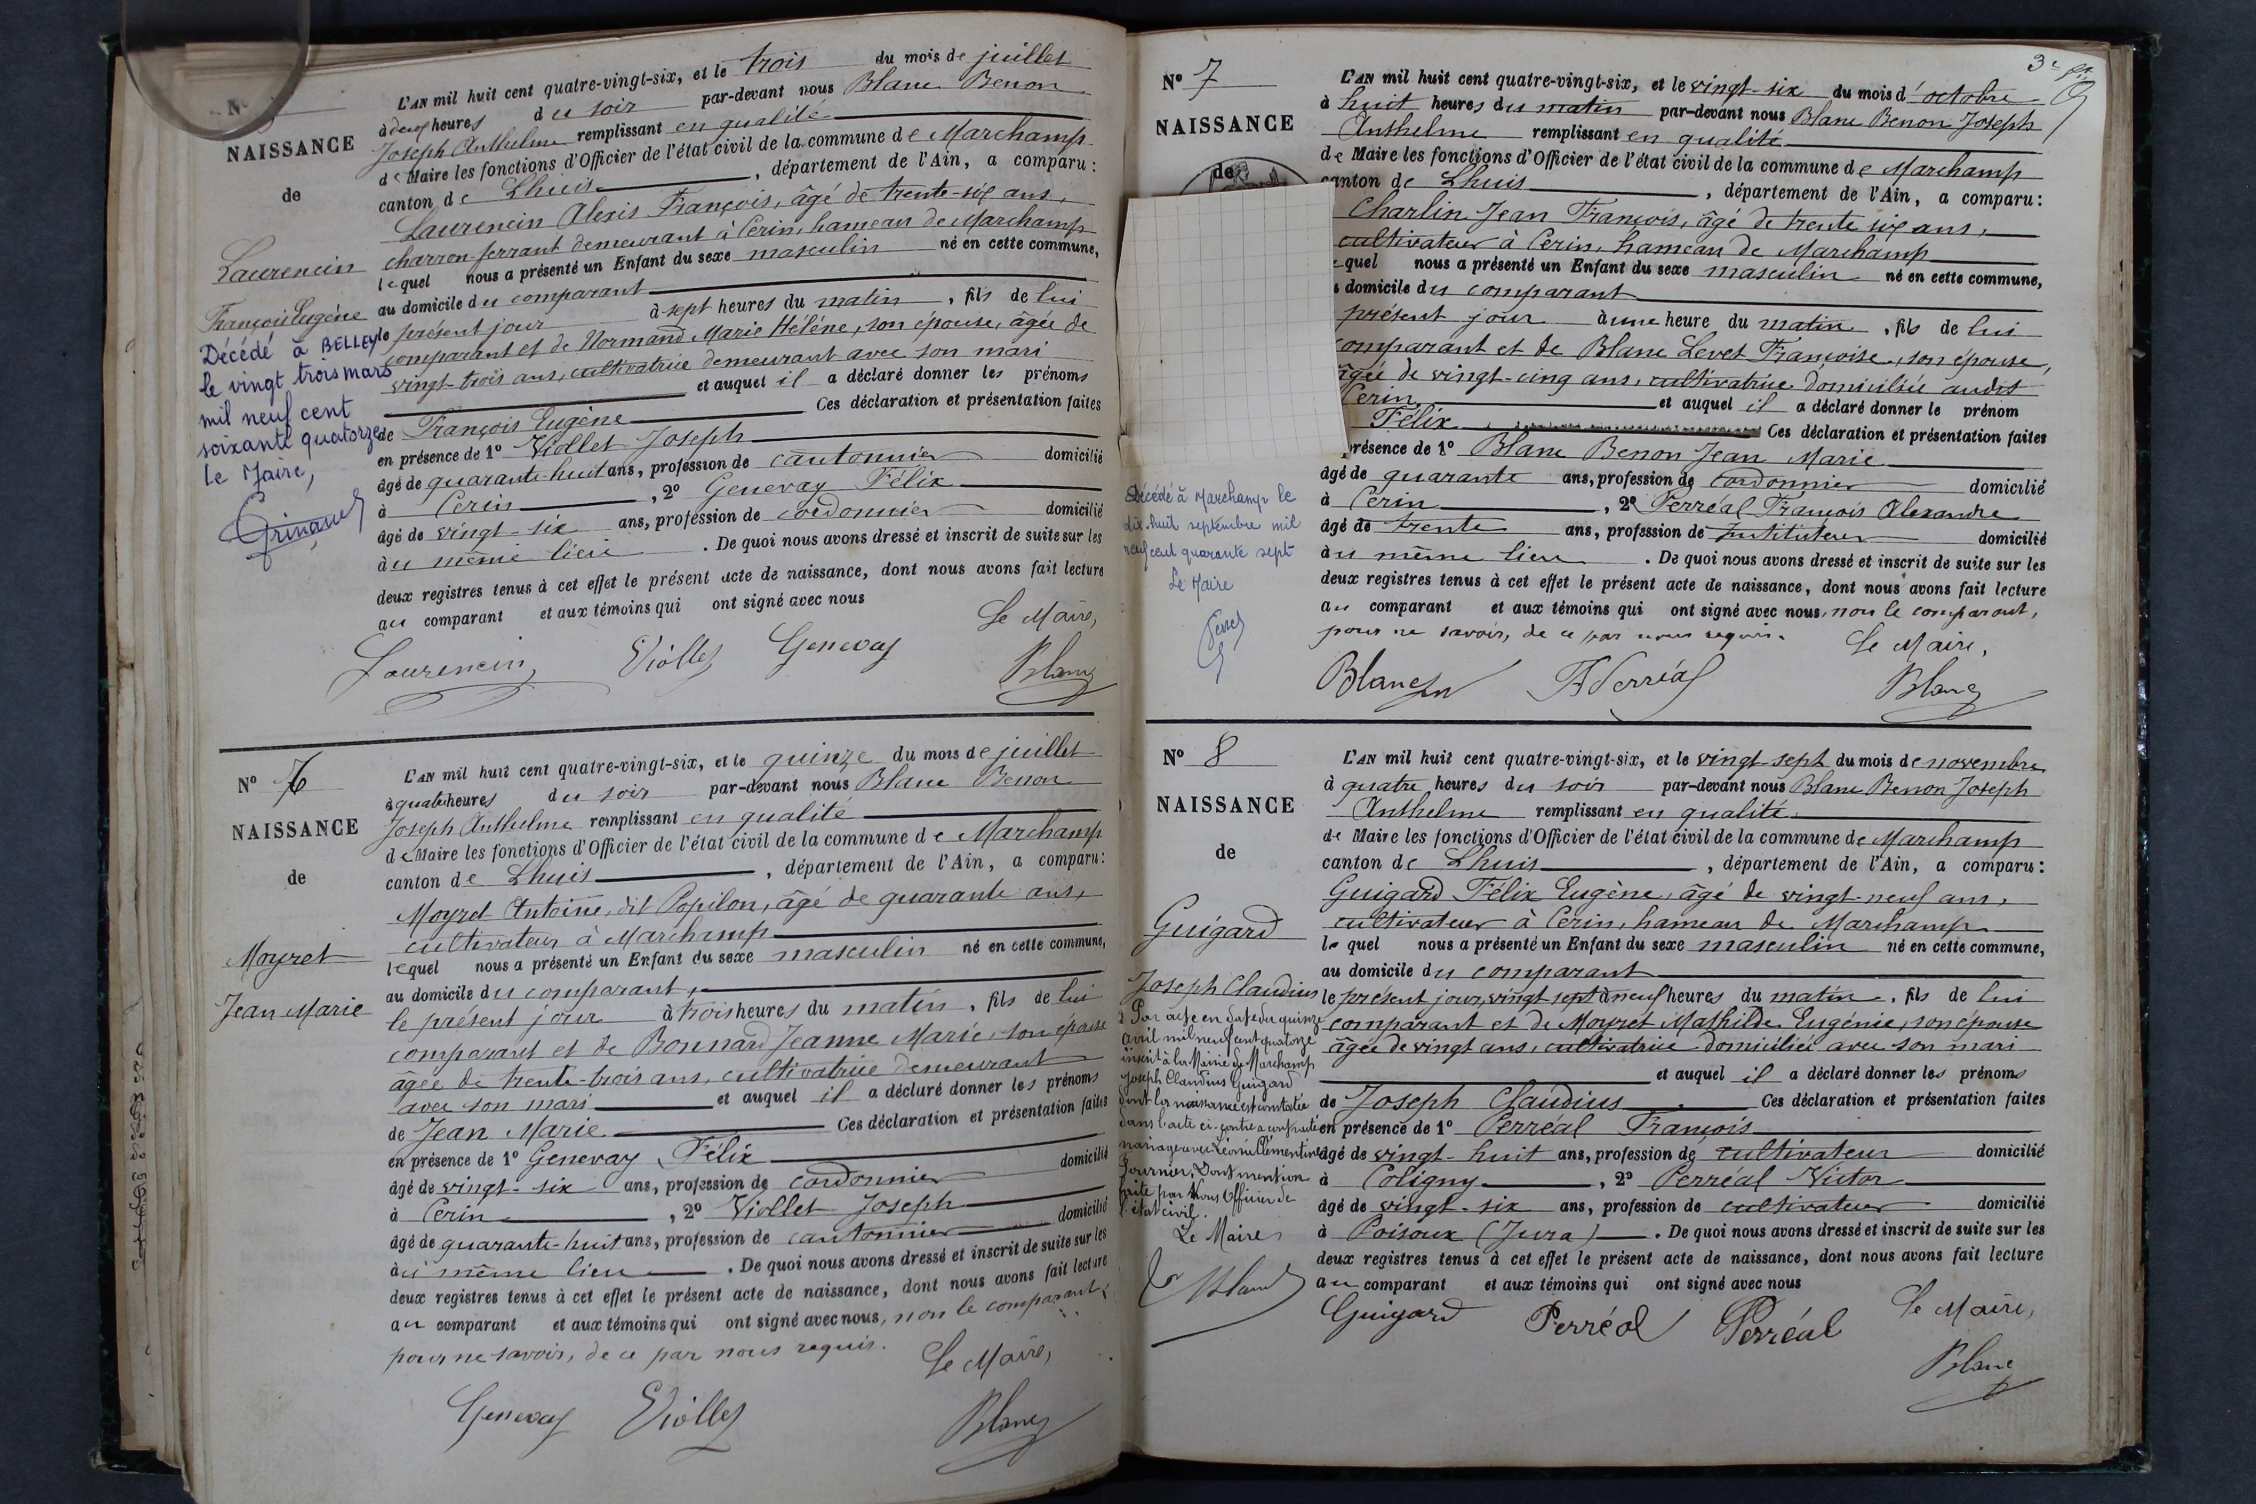 N°
NAISSANCE
de
Laurencin
François Eugène
Décédé à BELLEY
le vingt trois mars
mil neuf cent
soixante quatorze
Le Maire,
L'AN mil huit cent quatre-vingt-six, et le trois du mois de juillet
à deux heures du soir par-devant nous Blanc Benon
Joseph Anthelme remplissant en qualité
de Maire les fonctions d'Officier de l'état civil de la commune de Marchamp
canton de Lhuis, département de l'Ain, a comparu:
Laurencin Alexis François, âgé de trente-six ans,
charron-ferrant demeurant à Cerin, hameau de Marchamp
lequel nous a présenté un Enfant du sexe masculin né en cette commune,
au domicile du comparant
le présent jour à sept heures du matin, fils de lui
comparant et de Normand Marie Hélène, son épouse, âgée de
vingt-trois ans, cultivatrice demeurant avec son mari
et auquel il a déclaré donner les prénoms
de François Eugène Ces déclaration et présentation faites
en présence de 1° Viollet Joseph
âgé de quarante-huit ans, profession de cantonnier domicilié
à Cerin, 2° Genevay Félix
âgé de vingt-six ans, profession de cordonnier domicilié
au même lieu. De quoi nous avons dressé et inscrit de suite sur les
deux registres tenus à cet effet le présent acte de naissance, dont nous avons fait lecture
au comparant et aux témoins qui ont signé avec nous
Le Maire,
Laurencin Viollet Genevay Blanc
N° 6
NAISSANCE
de
Moyret
Jean Marie
L'AN mil huit cent quatre-vingt-six, et le quinze du mois de juillet
à quatre heures du soir par-devant nous Blanc Benon
Joseph Anthelme remplissant en qualité
de Maire les fonctions d'Officier de l'état civil de la commune de Marchamp
canton de Lhuis, département de l'Ain, a comparu:
Moyret Antoine, dit Papilon, âgé de quarante ans,
cultivateur à Marchamp
lequel nous a présenté un Enfant du sexe masculin né en cette commune,
au domicile du comparant,
le présent jour à trois heures du matin, fils de lui
comparant et de Bonnard Jeanne Marie, son épouse
âgée de trente-trois ans, cultivatrice demeurant
avec son mari et auquel il a déclaré donner les prénoms
de Jean Marie Ces déclaration et présentation faites
en présence de 1° Genevay Félix
âgé de vingt-six ans, profession de cordonnier domicilié
à Cerin, 2° Viollet Joseph
âgé de quarante-huit ans, profession de cantonnier domicilié
au même lieu. De quoi nous avons dressé et inscrit de suite sur les
deux registres tenus à cet effet le présent acte de naissance, dont nous avons fait lecture
au comparant et aux témoins qui ont signé avec nous, non le comparant,
pour ne savoir, de ce par nous requis.
Le Maire,
Genevay Viollet Blanc
3e
N° 7
NAISSANCE
de
Décédé à Marchamp le
dix-huit septembre mil
neuf cent quarante sept
Le Maire
L'AN mil huit cent quatre-vingt-six, et le vingt-six du mois d'octobre
à huit heures du matin par-devant nous Blanc Benon Joseph
Anthelme remplissant en qualité
de Maire les fonctions d'Officier de l'état civil de la commune de Marchamp
canton de Lhuis, département de l'Ain, a comparu:
Charlin Jean François, âgé de trente six ans,
cultivateur à Cerin, hameau de Marchamp
quel nous a présenté un Enfant du sexe masculin né en cette commune,
domicile du comparant
présent jour à une heure du matin, fils de lui
comparant et de Blanc Levet Françoise, son épouse,
âgée de vingt-cinq ans, cultivatrice domiciliée audit
Cerin et auquel il a déclaré donner le prénom
Félix Ces déclaration et présentation faites
présence de 1° Blanc Benon Jean Marie
âgé de quarante ans, profession de cordonnier domicilié
à Cerin, 2° Perréal François Alexandre
âgé de trente ans, profession de Instituteur domicilié
au même lieu. De quoi nous avons dressé et inscrit de suite sur les
deux registres tenus à cet effet le présent acte de naissance, dont nous avons fait lecture
au comparant et aux témoins qui ont signé avec nous, non le comparant,
pour ne savoir, de ce par nous requis.
Le Maire,
Blanc Perréal Blanc
N° 8
NAISSANCE
de
Guigard
Joseph Claudius
Par acte en date du quinze
avril mil neuf cent quatorze
inscrit à la Mairie de Marchamp
Joseph Claudius Guigard
dont la naissance est constatée
dans l'acte ci-contre a contracté
mariage avec Léonie Clémentine
Fournier. Dont mention
faite par Nous Officier de
l'état civil.
Le Maire
Blanc
L'AN mil huit cent quatre-vingt-six, et le vingt-sept du mois de novembre
à quatre heures du soir par-devant nous Blanc Benon Joseph
Anthelme remplissant en qualité
de Maire les fonctions d'Officier de l'état civil de la commune de Marchamp
canton de Lhuis, département de l'Ain, a comparu:
Guigard Félix Eugène, âgé de vingt-neuf ans,
cultivateur à Cerin, hameau de Marchamp
le quel nous a présenté un Enfant du sexe masculin né en cette commune,
au domicile du comparant
le présent jour, vingt sept à neuf heures du matin, fils de lui
comparant et de Moyret Mathilde Eugénie, son épouse
âgée de vingt ans, cultivatrice domiciliée avec son mari
et auquel il a déclaré donner les prénoms
de Joseph Claudius Ces déclaration et présentation faites
en présence de 1° Perréal François
âgé de vingt-huit ans, profession de cultivateur domicilié
à Coligny, 2° Perréal Victor
âgé de vingt-six ans, profession de cultivateur domicilié
à Poisoux (Jura). De quoi nous avons dressé et inscrit de suite sur les
deux registres tenus à cet effet le présent acte de naissance, dont nous avons fait lecture
au comparant et aux témoins qui ont signé avec nous
Le Maire,
Guigard Perréal Perréal
Blanc